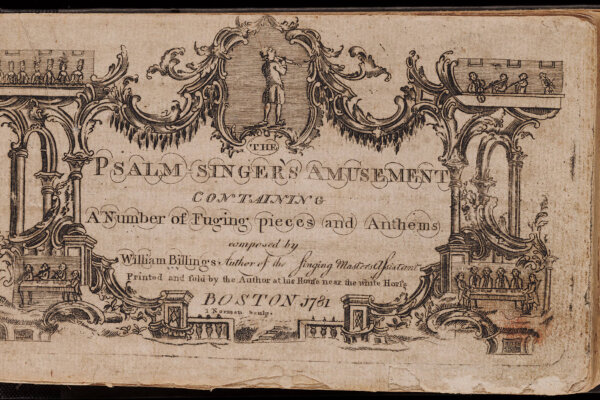 THE
PSALM SINGER'S AMUSEMENT
CONTAINING
A Number of Fuging pieces and Anthems
composed by
William Billings, Author of the Singing Masters Assistant
Printed and sold by the Author at his House near the white Horse
BOSTON 1781
J Norman Sculp.